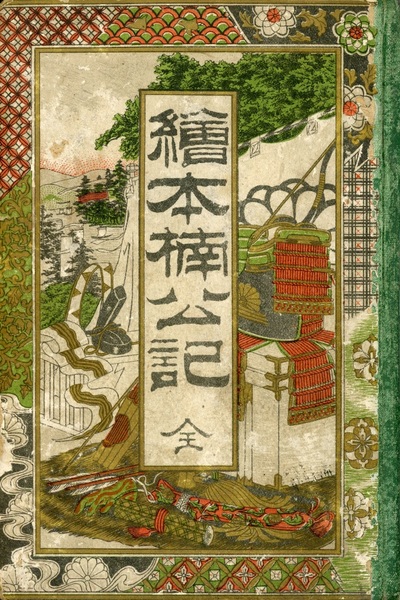 繪本楠公記
全